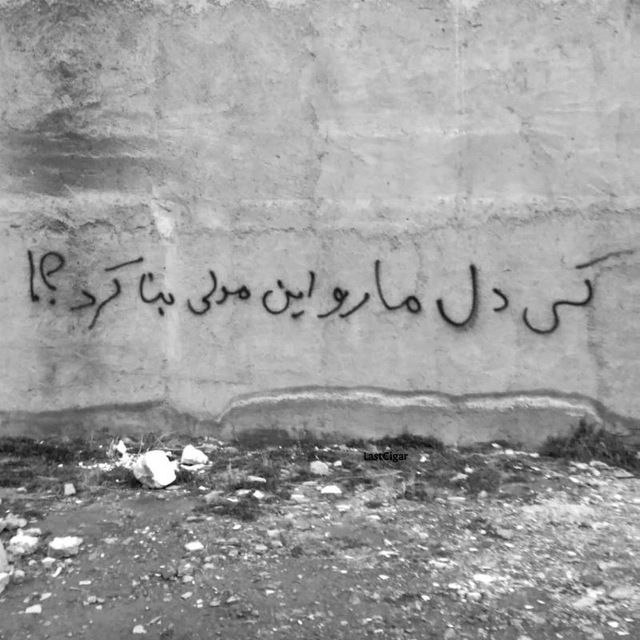 کی دل مارو این مدلی بنا کرد؟!
LastCigar